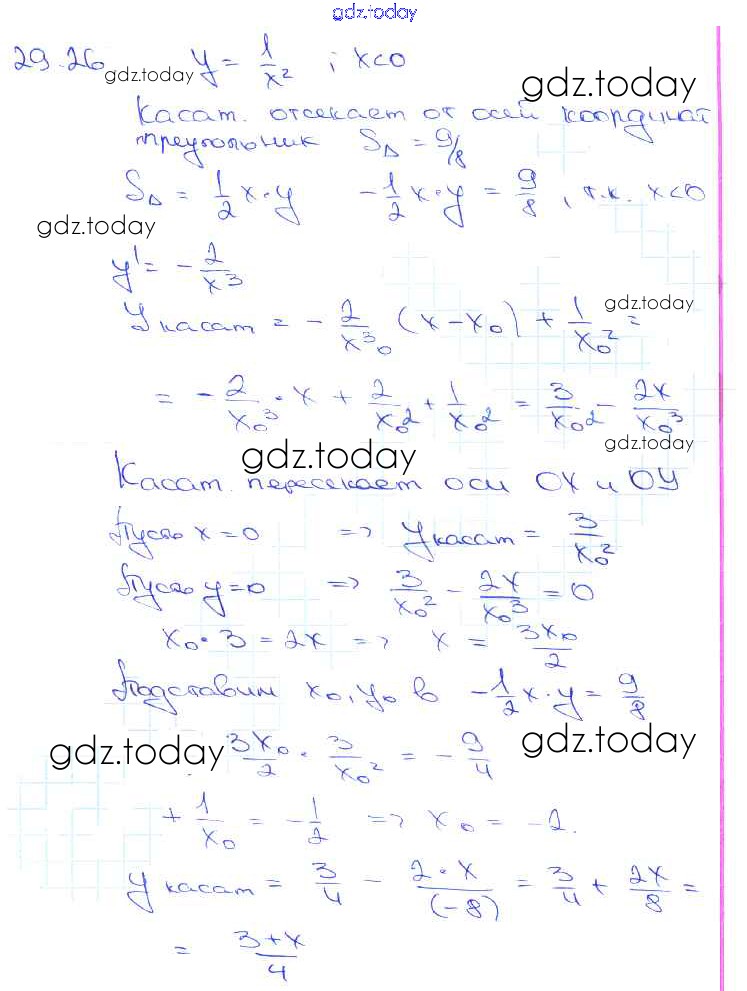 gdz.today
29.26 gdz.today y = 1/x² ; x<0 gdz.today
Касат. отсекает от осей координат
треугольник S△ = 9/8
S△ = 1/2 x·y -1/2 x·y = 9/8, т.к. x<0
gdz.today
y' = -2/x³
gdz.today
y касат = -2/x₀³ (x-x₀) + 1/x₀² =
= -2/x₀³ · x + 2/x₀² + 1/x₀² = 3/x₀² - 2x/x₀³
gdz.today gdz.today
Касат. пересекает оси OX и OY
Пусть x=0 => y касат = 3/x₀²
Пусть y=0 => 3/x₀² - 2x/x₀³ = 0
x₀·3 = 2x => x = 3x₀/2
Подставим x₀, y₀ в -1/2 x·y = 9/8
gdz.today 3x₀/2 · 3/x₀² = -9/4 gdz.today
+ 1/x₀ = -1/2 => x₀ = -2.
y касат = 3/4 - 2·x/(-8) = 3/4 + 2x/8 =
= 3+x/4